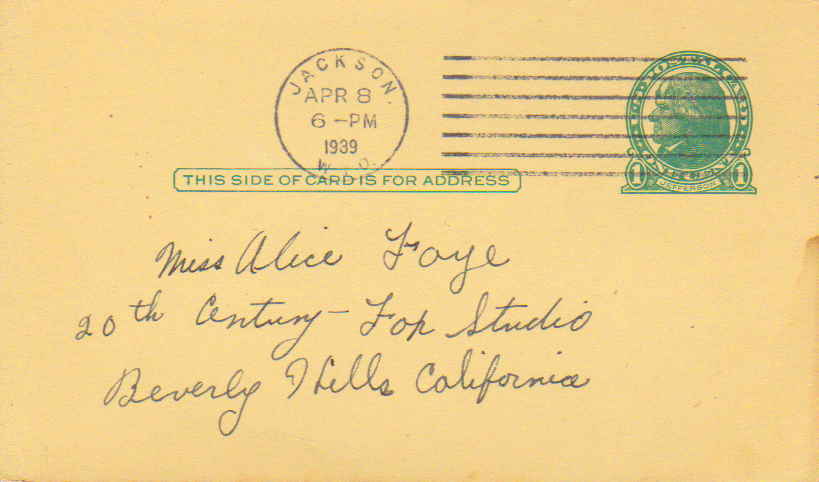 JACKSON.
APR 8
6-PM
1939
THIS SIDE OF CARD IS FOR ADDRESS
U.S. POSTAL CARD
1 JEFFERSON 1
Miss Alice Faye
20th Century-Fox Studio
Beverly Hills California